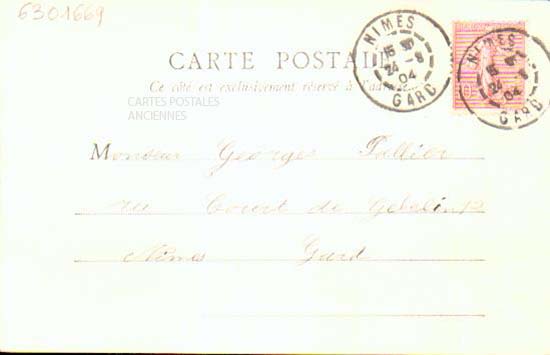 6301669
CARTE POSTALE
Ce côté est exclusivement réservé à l'adresse
CARTES POSTALES
ANCIENNES
NIMES
15
24 -8
04
GARD
NIMES
15
24 8
04
GARD
10
Monsieur Georges
rue Court de Gebelin 12
Nîmes Gard